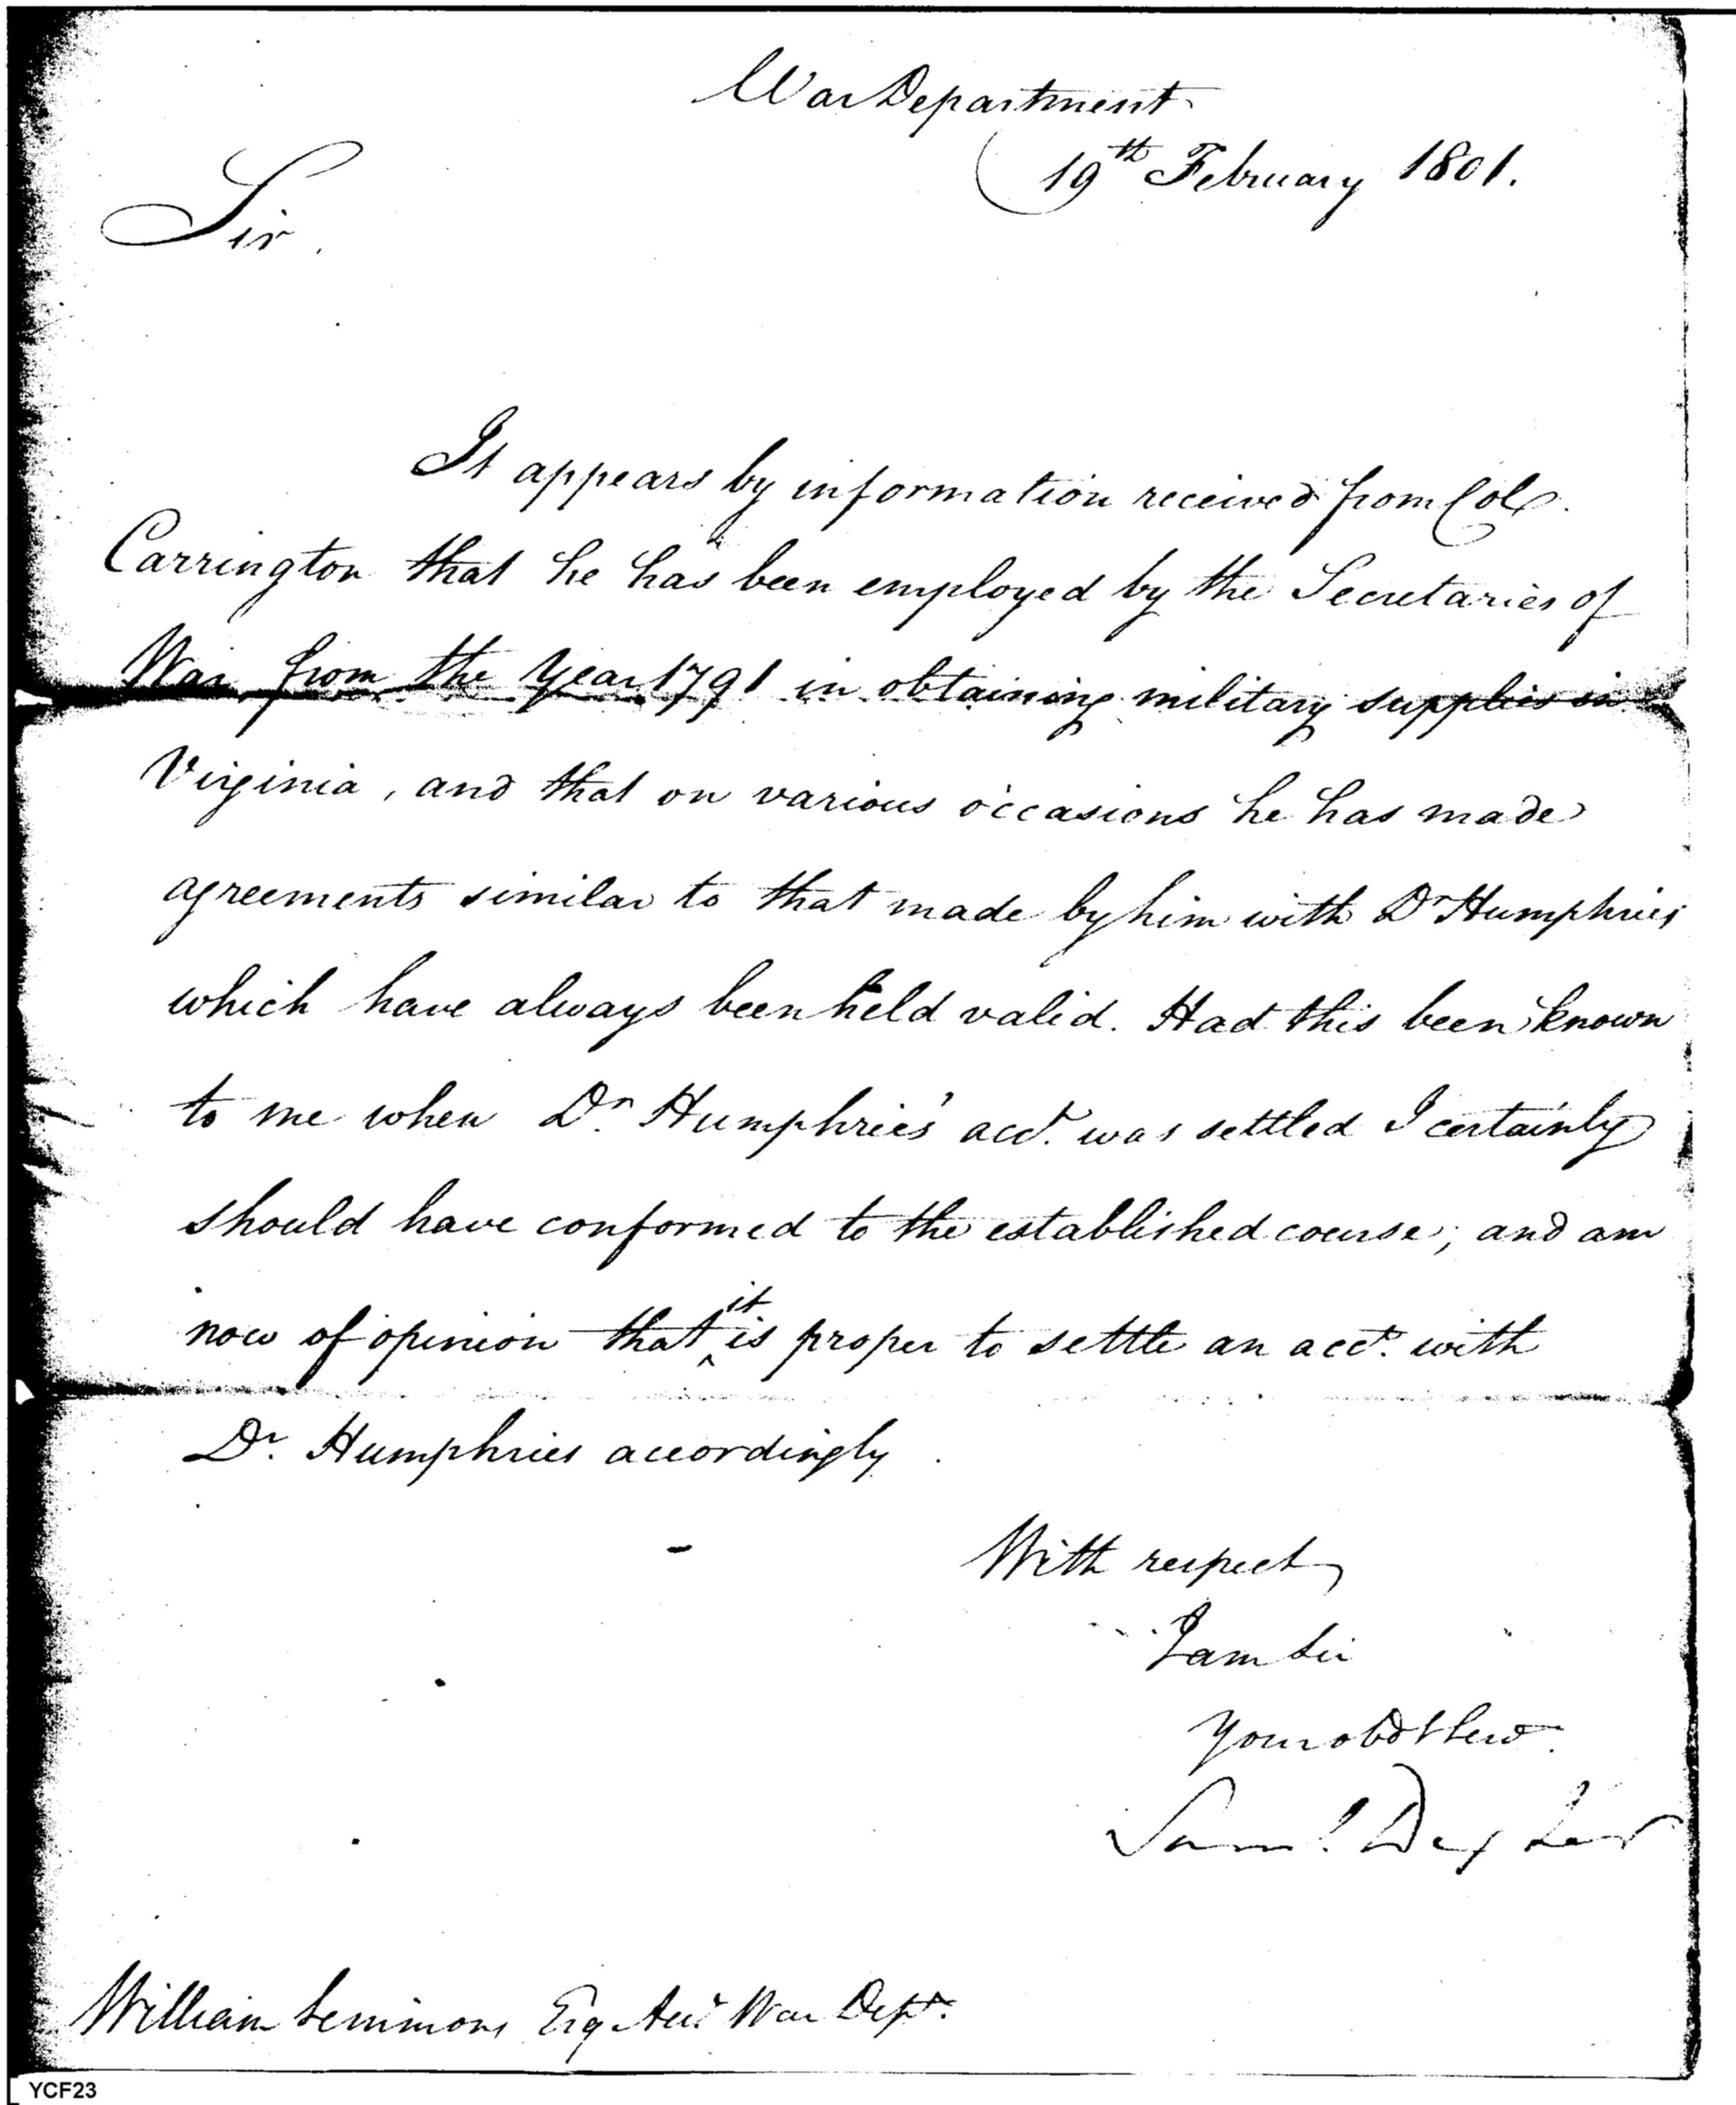 War Department
19th February 1801.
Sir.
It appears by information received from Col.
Carrington that he has been employed by the Secretaries of
War from the Year 1791 in obtaining military supplies in
Virginia, and that on various occasions he has made
agreements similar to that made by him with Dr Humphries
which have always been held valid. Had this been known
to me when Dr. Humphries' acct. was settled I certainly
should have conformed to the established course; and am
now of opinion that it is proper to settle an acct. with
Dr. Humphries accordingly.
With respect
I am Sir
Your obdt Serv.
Saml. Dexter
William Simmons Esq. Acct War Dept.
YCF23